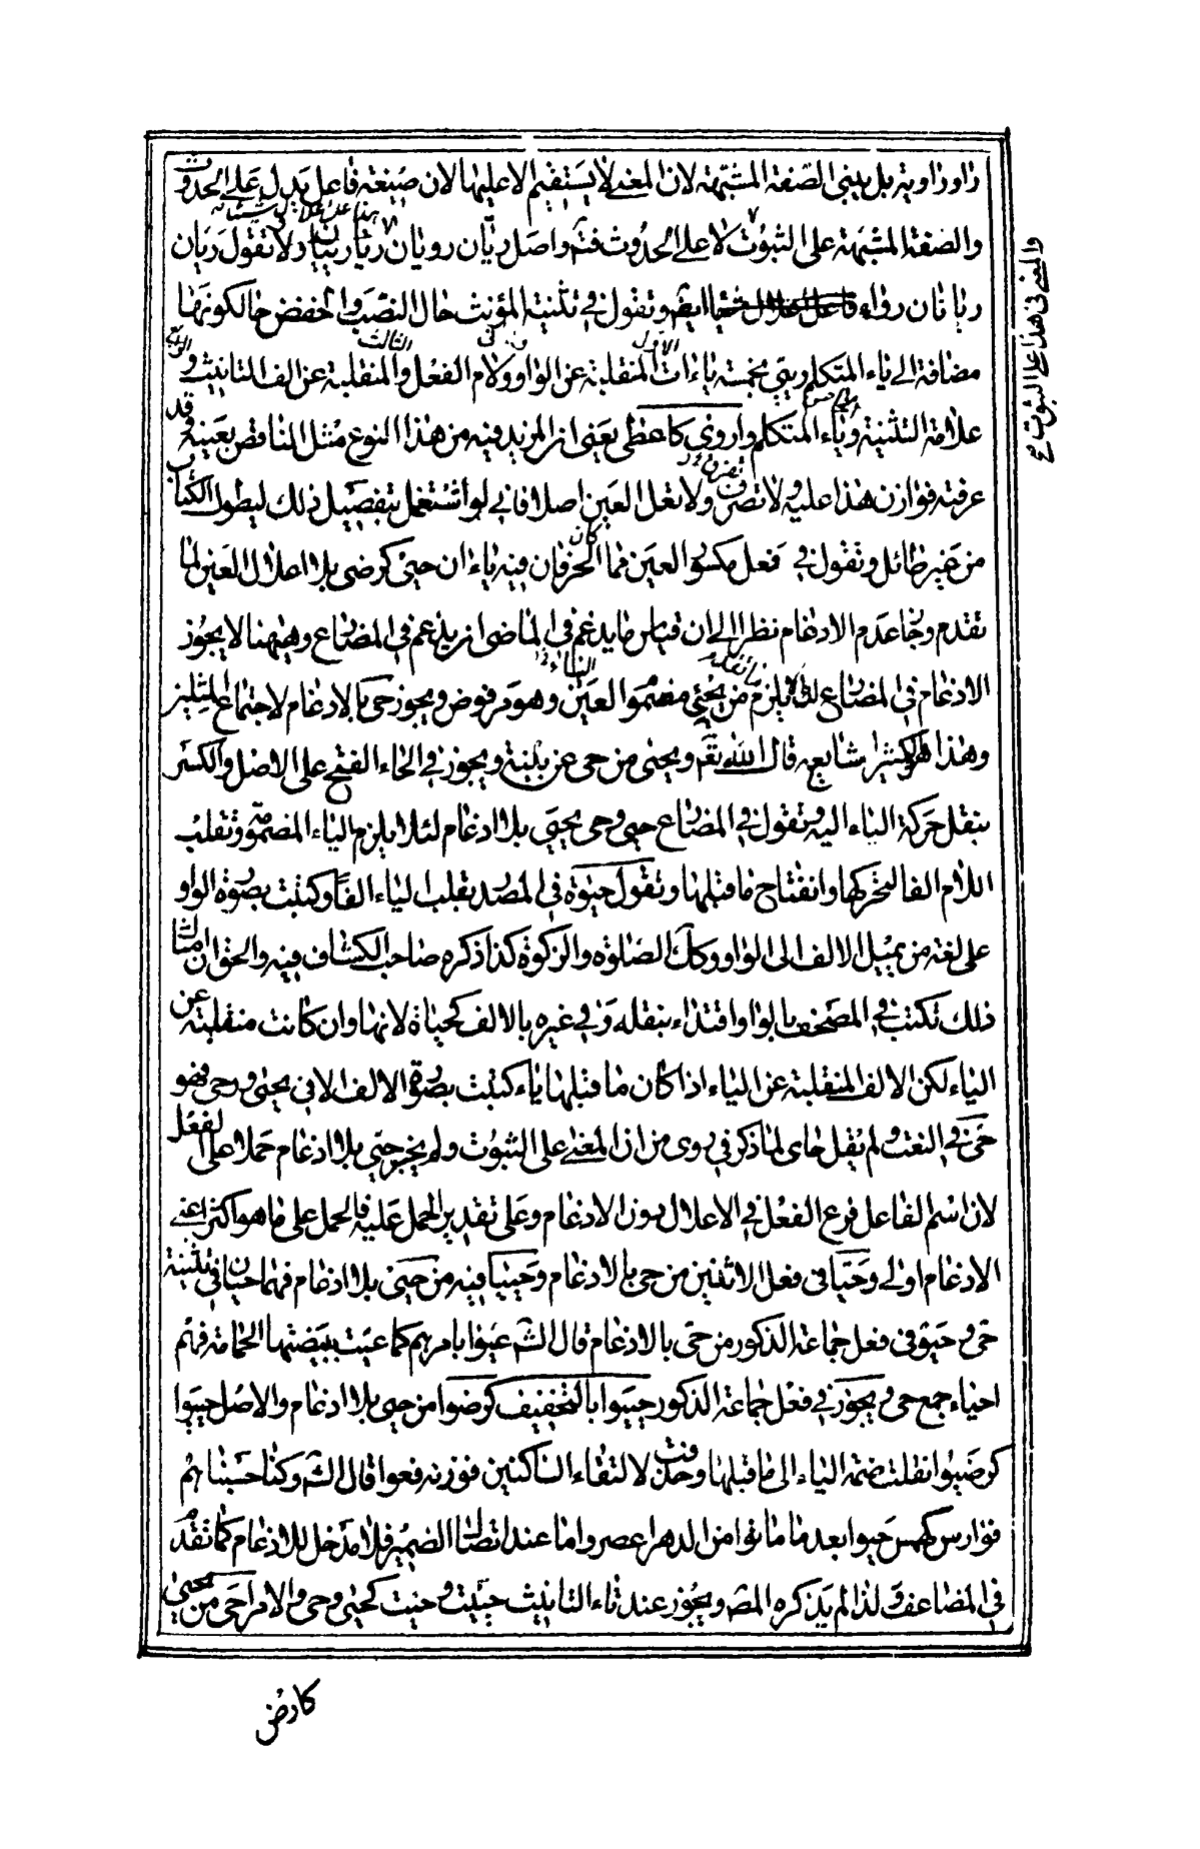 راو وراوية بل يبنى الصفة المشبهة لان المعنى لا يستقيم الا عليها لان صيغة فاعل يدل على الحدوث
والصفة المشبهة على الثبوت لا على الحدوث فتم واصل ريان رويان ريان ريان رواء ولا تقول ريان
ريا ريان رواء ايضا وتقول في تثنية المؤنث حال النصب والخفض حالكونها
مضافة الى ياء المتكلم ريتي بخمسة ياءات المنقلبة عن الواو ولام الفعل والمنقلبة عن الف التانيث و
علامة التثنية وياء المتكلم واروى كاعطى يعنى ان المزيد فيه من هذا النوع مثل الناقص بعينه وقد
عرفته فوازن هذا عليه ولا تفرق ولا تعل العين اصلا فانى لو اشتغل بتفصيل ذلك ليطول الكتاب
من غير طائل وتقول في فعل مكسور العين مما كان الحرفان فيه ياءان حيى كرضى بلا اعلال العين لما
تقدم وجاء عدم الادغام نظرا الى ان قياس ما يدغم في الماضى ان يدغم في المضارع وههنا لا يجوز
الادغام في المضارع لئلا يلزم من يحيى مضموم العين وهو مرفوض ويجوز حى بالادغام لاجتماع المثلين
وهذا هو الكثير الشايع قال الله تعم ويحيى من حى عن بينة ويجوز في الحاء الفتح على الاصل والكسر
بنقل حركة الياء اليه وتقول في المضارع حيى وحى يحيى بلا ادغام لئلا يلزم الياء المضموم وتقلب
اللام الفا لتحركها وانفتاح ما قبلها وتقول حيوة في المصدر بقلب الياء الفا وكتبت بصورة الواو
على لغة من يميل الالف الى الواو وكك الصلوة والزكوة كذا ذكره صاحب الكشاف فيه والحق ان امثال
ذلك تكتب في المصحف بالواو اقتداء بنقله وفي غيره بالالف كحياة لانها وان كانت منقلبة عن
الياء لكن الالف المنقلبة عن الياء اذا كان ما قبلها ياء كتبت بصورة الالف الا في يحيى وحى فهو
حى في النعت ولم يقل حاى لما ذكر في روى من ان المعنى على الثبوت ولم يجز حيى بلا ادغام حملا على الفعل
لان اسم الفاعل فرع الفعل في الاعلال دون الادغام وعلى تقدير الحمل عليه فالحمل على ما هو اكثر اعنى
الادغام اولى وحيا في فعل الاثنين من حى بالادغام وحييا فيه من حيى بلا ادغام فهما حيان في تثنية
حى وحيوا في فعل جماعة الذكور من حى بالادغام قال الشـ عيوا بامرهم كما عيت ببيضتها الحمامة فهم
احياء جمع حى ويجوز في فعل جماعة الذكور حيوا بالتخفيف كرضوا من حيى بلا ادغام والاصل حييوا
كرضيوا نقلت ضمة الياء الى ما قبلها وحذفت لالتقاء الساكنين فوزنه فعوا قال الشـ وكنا حسبناهم
فوارس كهمس حيوا بعد ما ماتوا من الدهر اعصرا واما عند اتصال الضمير فلا مدخل للادغام كما تقدم
في المضاعف ولذا لم يذكره المصـ ويجوز عند تاء التانيث حييت وحيت كحيى وحى والامر احى من يحيى
كارض
والمعنى في هذا على الثبوت